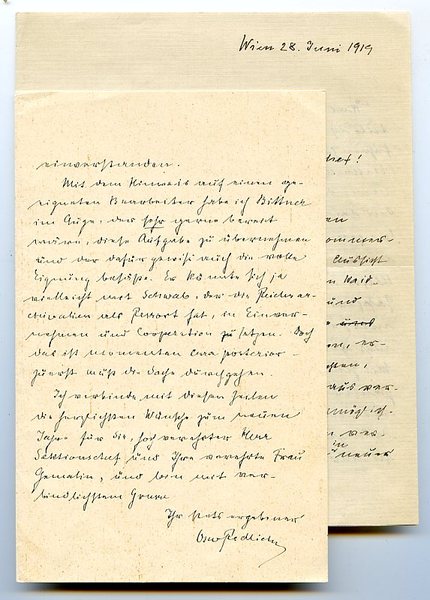 Wien 28. Juni 1919
einverstanden.
Mit dem Hinweis auf einen ge-
eigneten Bearbeiter habe ich Bittner
im Auge, der sehr gerne bereit
wäre, diese Aufgabe zu übernehmen
und der dafür gewiß auch die volle
Eignung besäße. Er könnte sich ja
vielleicht mit Schwab, der die Reichsar-
als Referat hat, in Einver-
nehmen und Cooperation zu setzen. Doch
das ist momentan cura posterior
zuerst muß die Sache durchgehen.
Ich verbinde mit diesen Zeilen
die herzlichsten Wünsche zum neuen
Jahre für Sie, hochverehrter Herr
Sektionschef und Ihre verehrte Frau
Gemalin, und bin mit ver-
bindlichstem Gruss
Ihr stets ergebener
Osw Redlich
ommer-
Aussicht
und
en, er-
aus ver-
ver-
neuer